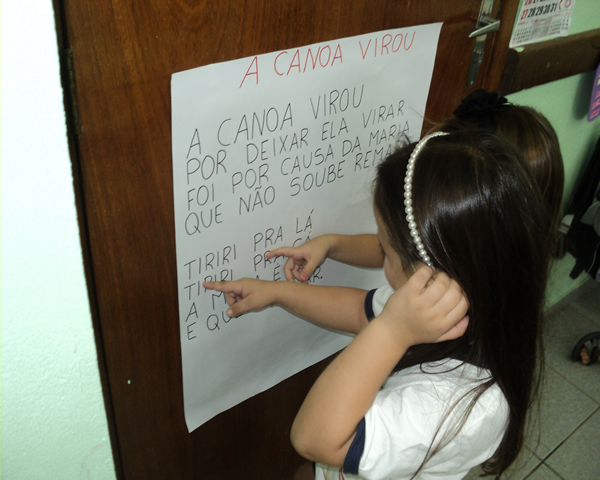 A CANOA VIROU
A CANOA VIROU
POR DEIXAR ELA VIRAR
FOI POR CAUSA DA MARIA
QUE NÃO SOUBE REMA
TIRIRI PRA LÁ
TIRIRI PRA
A
E QU
27 28 29 30 31